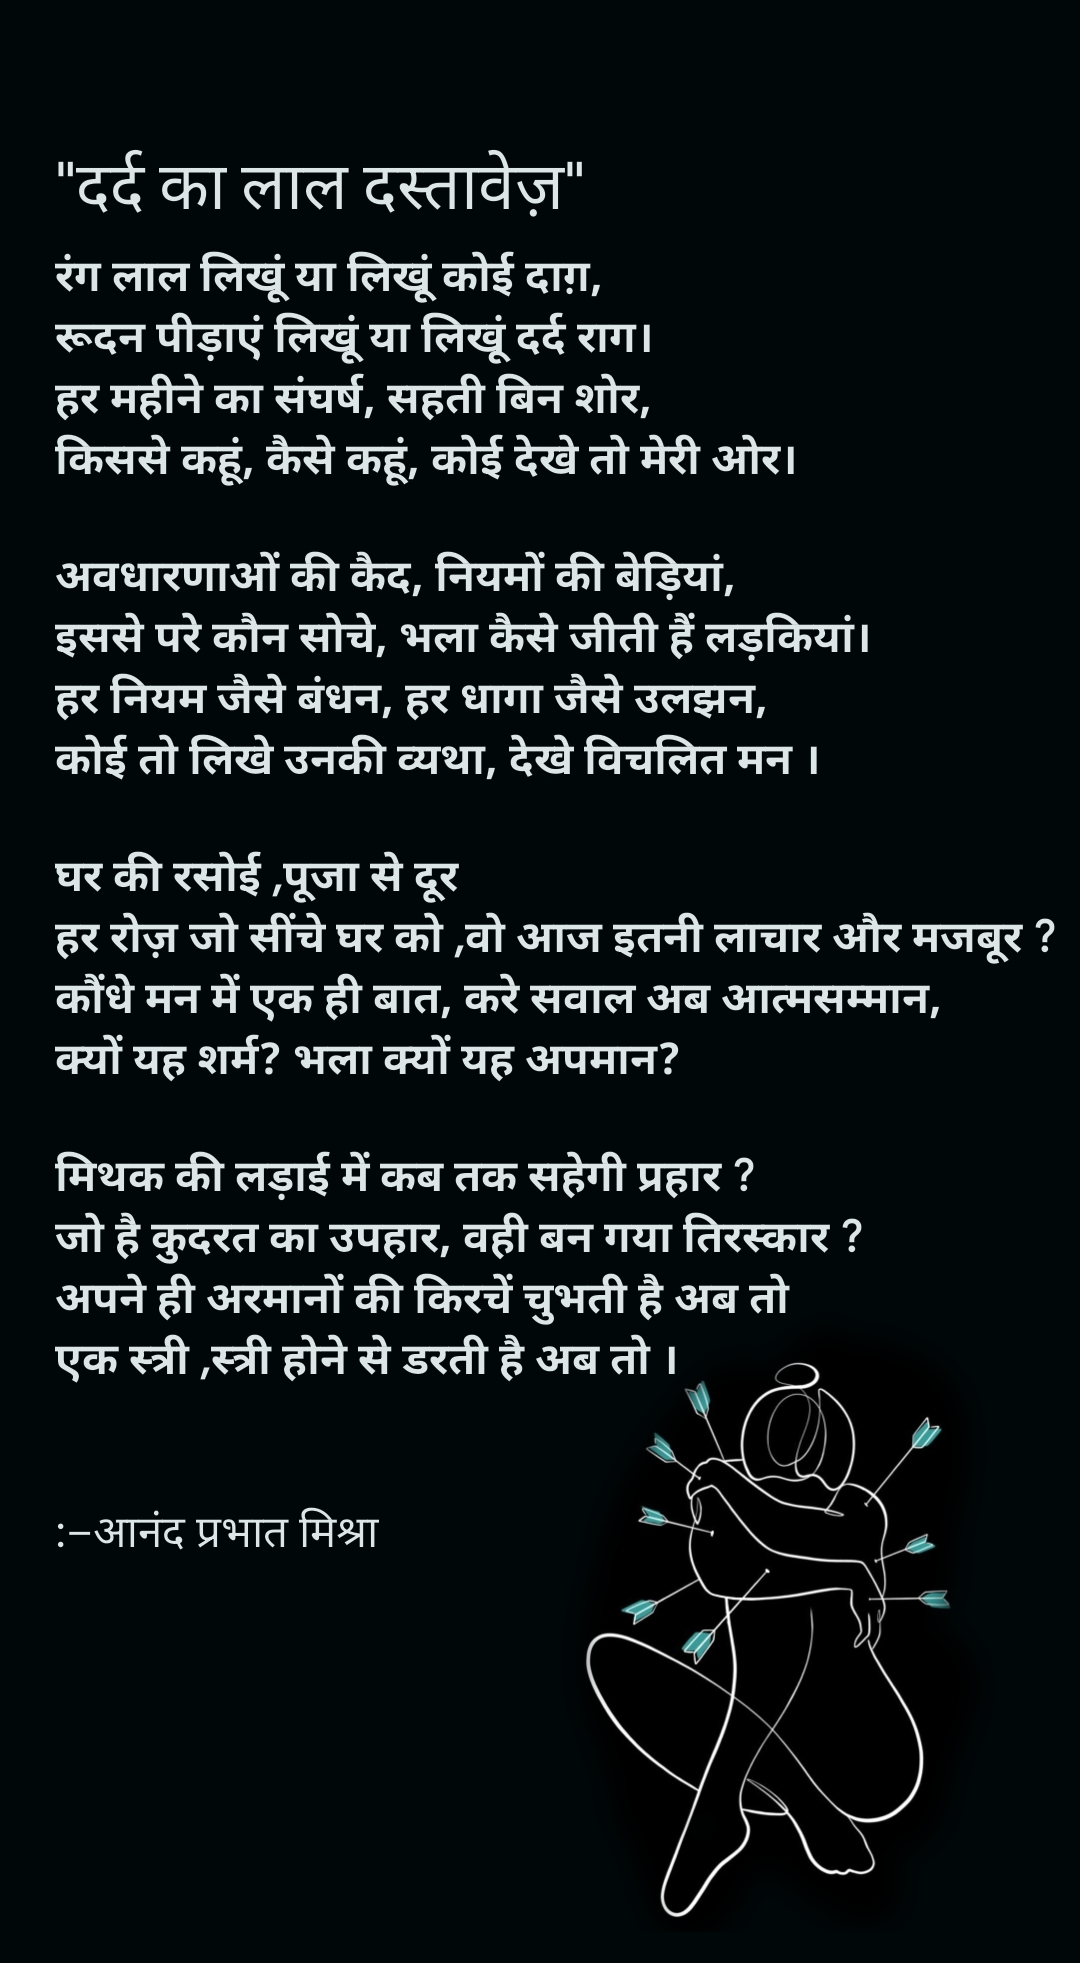 "दर्द का लाल दस्तावेज़"
रंग लाल लिखूं या लिखूं कोई दाग़,
रूदन पीड़ाएं लिखूं या लिखूं दर्द राग।
हर महीने का संघर्ष, सहती बिन शोर,
किससे कहूं, कैसे कहूं, कोई देखे तो मेरी ओर।
अवधारणाओं की कैद, नियमों की बेड़ियां,
इससे परे कौन सोचे, भला कैसे जीती हैं लड़कियां।
हर नियम जैसे बंधन, हर धागा जैसे उलझन,
कोई तो लिखे उनकी व्यथा, देखे विचलित मन ।
घर की रसोई ,पूजा से दूर
हर रोज़ जो सींचे घर को ,वो आज इतनी लाचार और मजबूर ?
कौंधे मन में एक ही बात, करे सवाल अब आत्मसम्मान,
क्यों यह शर्म? भला क्यों यह अपमान?
मिथक की लड़ाई में कब तक सहेगी प्रहार ?
जो है कुदरत का उपहार, वही बन गया तिरस्कार ?
अपने ही अरमानों की किरचें चुभती है अब तो
एक स्त्री ,स्त्री होने से डरती है अब तो ।
:–आनंद प्रभात मिश्रा